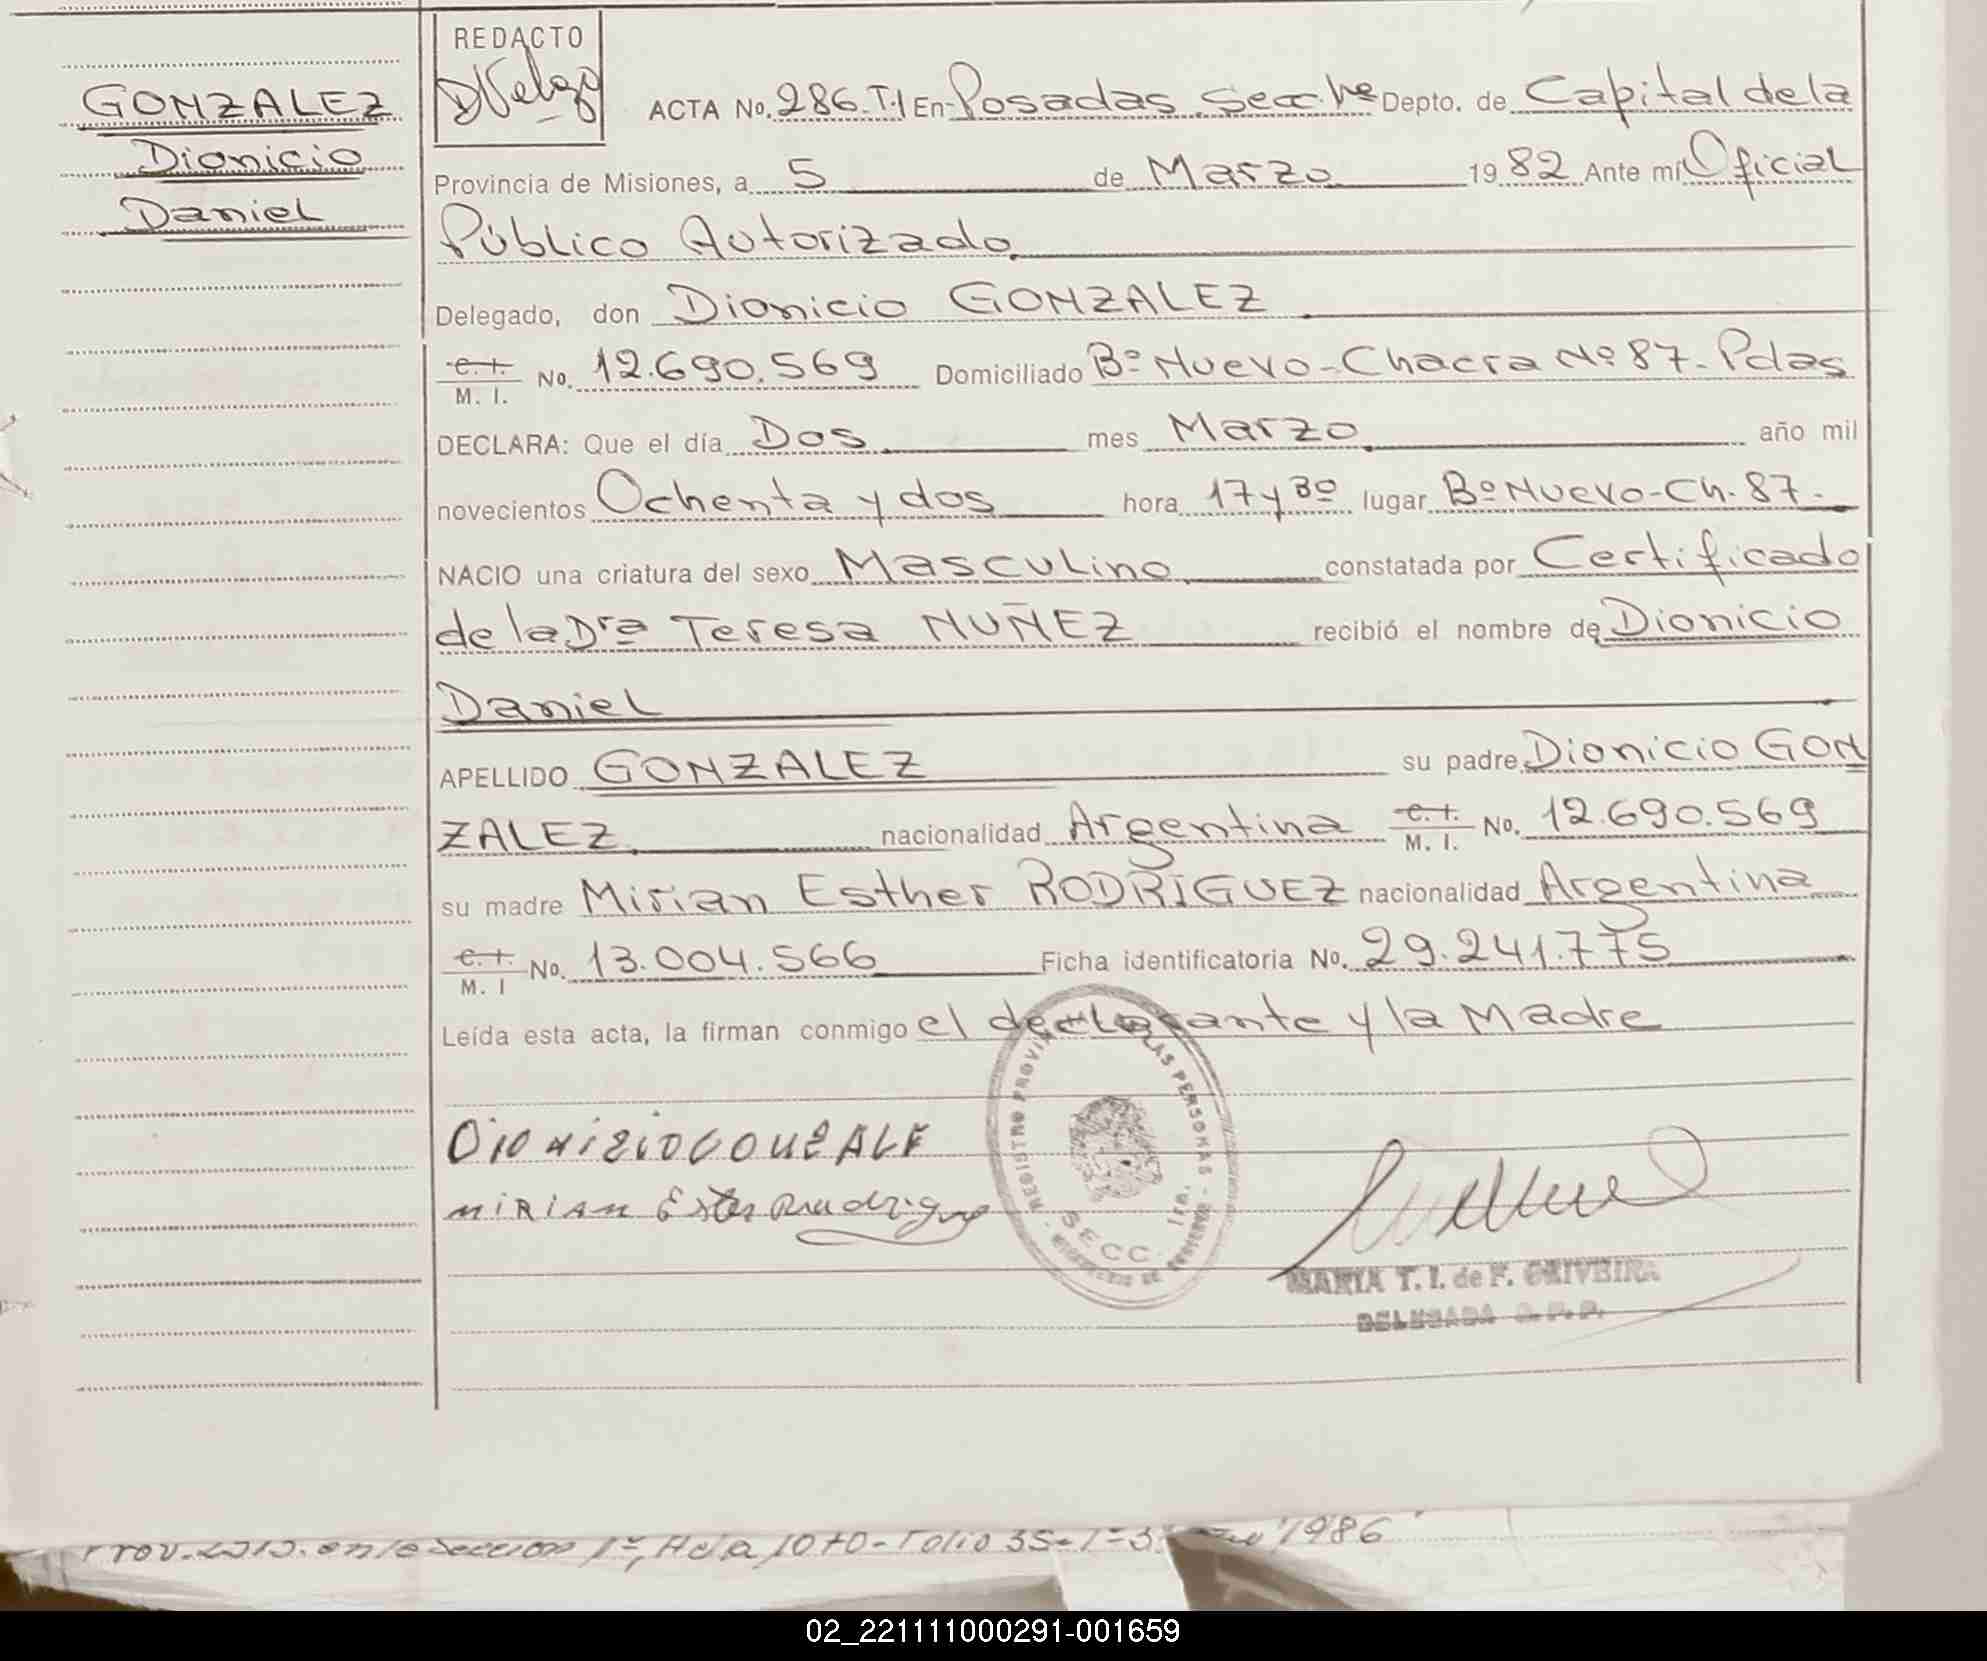 GONZALEZ
Dionicio
Daniel
REDACTO
ACTA No. 286.T.I En Posadas, Secc. 1ª Depto. de Capital de la
Provincia de Misiones, a 5 de Marzo 1982 Ante mí Oficial
Público Autorizado.
Delegado, don Dionicio GONZALEZ
C.I. M. I. No. 12.690.569 Domiciliado Bº Nuevo-Chacra Nº 87-Pdas
DECLARA: Que el día Dos mes Marzo año mil
novecientos Ochenta y dos hora 17 y 30 lugar Bº Nuevo-Ch. 87.-
NACIO una criatura del sexo Masculino constatada por Certificado
de la Dra Teresa NUÑEZ recibió el nombre de Dionicio
Daniel
APELLIDO GONZALEZ su padre Dionicio GON
ZALEZ nacionalidad Argentina C.I. M. I. No. 12.690.569
su madre Mirian Esther RODRIGUEZ nacionalidad Argentina
C.I. M. I No. 13.004.566 Ficha identificatoria No. 29.241.775
Leída esta acta, la firman conmigo el declarante y la Madre
MIRIAN Ester
REGISTRO PROVIN LAS PERSONAS
SECC. 1ra.
MARIA T. I. de F. OLIVEIRA
DELEGADA
1986
02_221111000291-001659